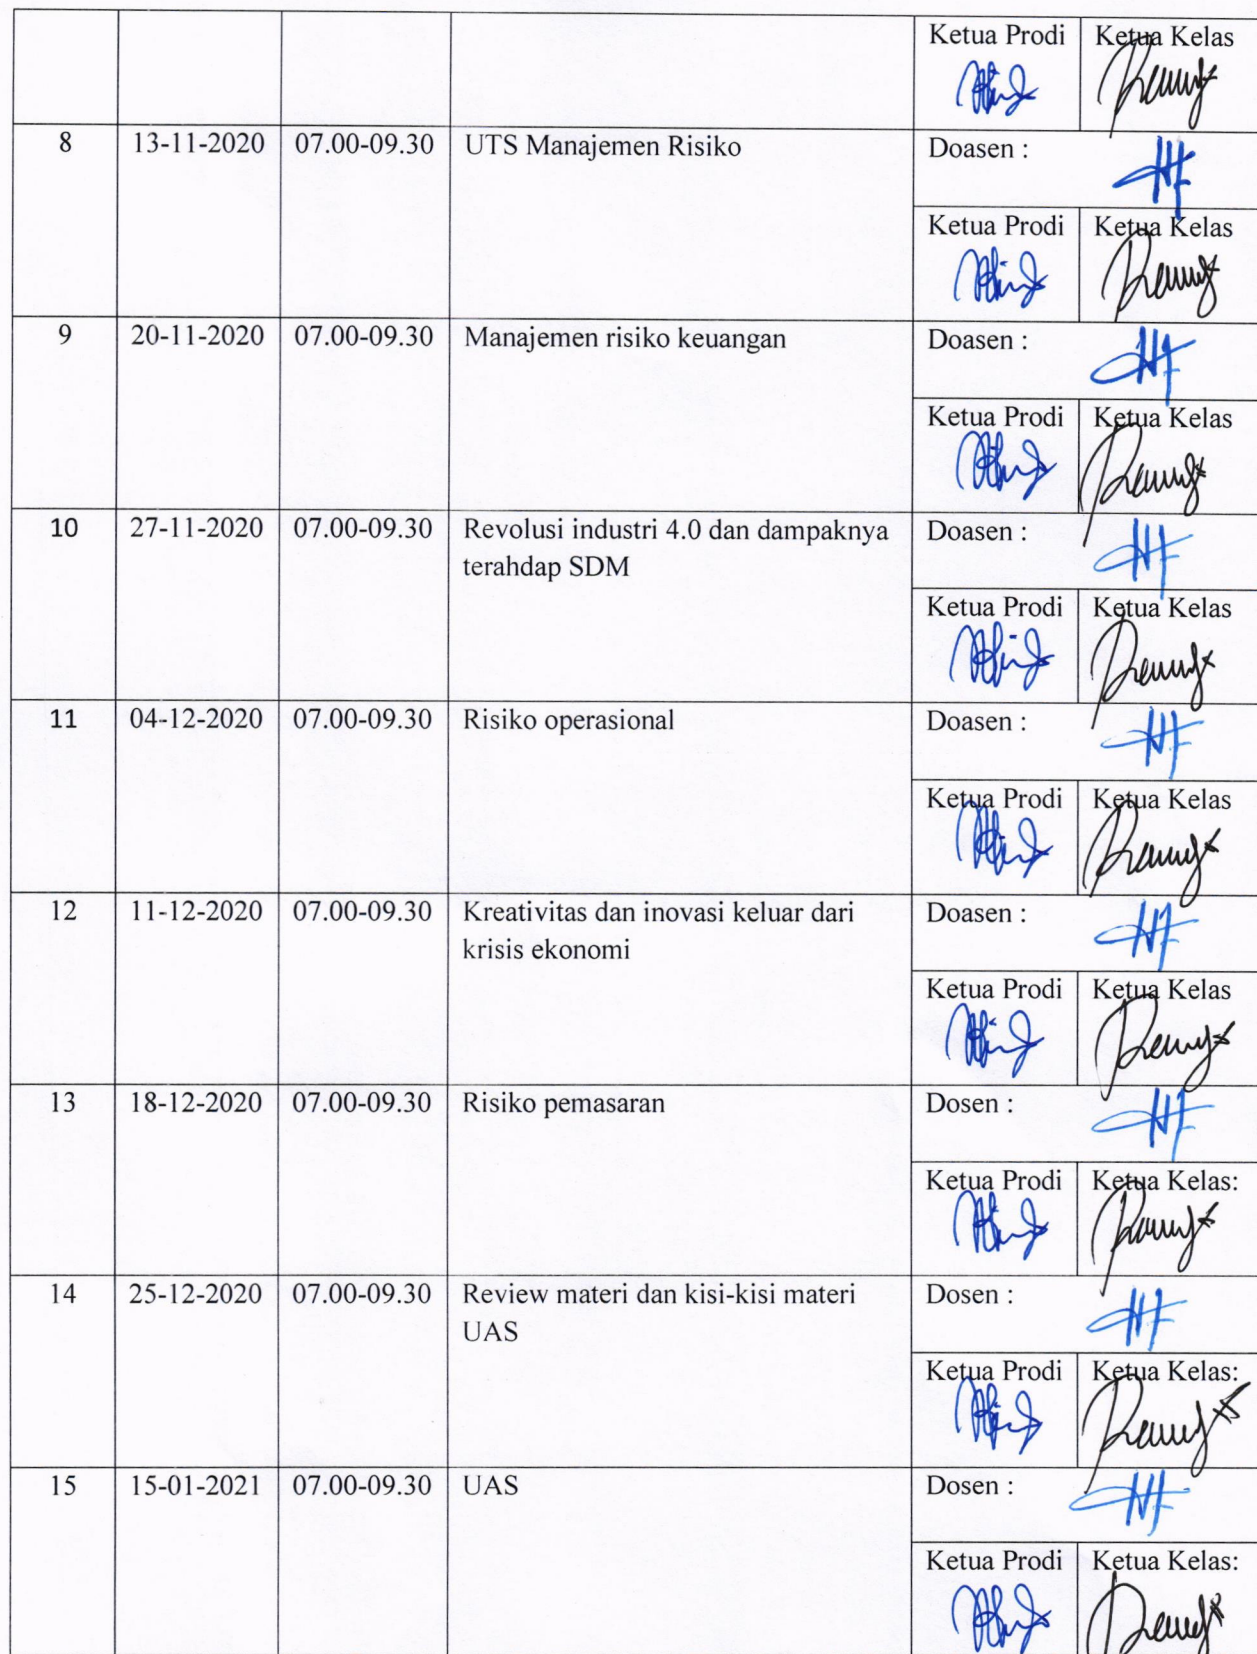 Ketua Prodi Ketua Kelas
8 13-11-2020 07.00-09.30 UTS Manajemen Risiko Doasen :
Ketua Prodi Ketua Kelas
9 20-11-2020 07.00-09.30 Manajemen risiko keuangan Doasen :
Ketua Prodi Ketua Kelas
10 27-11-2020 07.00-09.30 Revolusi industri 4.0 dan dampaknya Doasen :
terahdap SDM
Ketua Prodi Ketua Kelas
11 04-12-2020 07.00-09.30 Risiko operasional Doasen :
Ketua Prodi Ketua Kelas
12 11-12-2020 07.00-09.30 Kreativitas dan inovasi keluar dari Doasen :
krisis ekonomi
Ketua Prodi Ketua Kelas
13 18-12-2020 07.00-09.30 Risiko pemasaran Dosen :
Ketua Prodi Ketua Kelas:
14 25-12-2020 07.00-09.30 Review materi dan kisi-kisi materi Dosen :
UAS
Ketua Prodi Ketua Kelas:
15 15-01-2021 07.00-09.30 UAS Dosen :
Ketua Prodi Ketua Kelas: